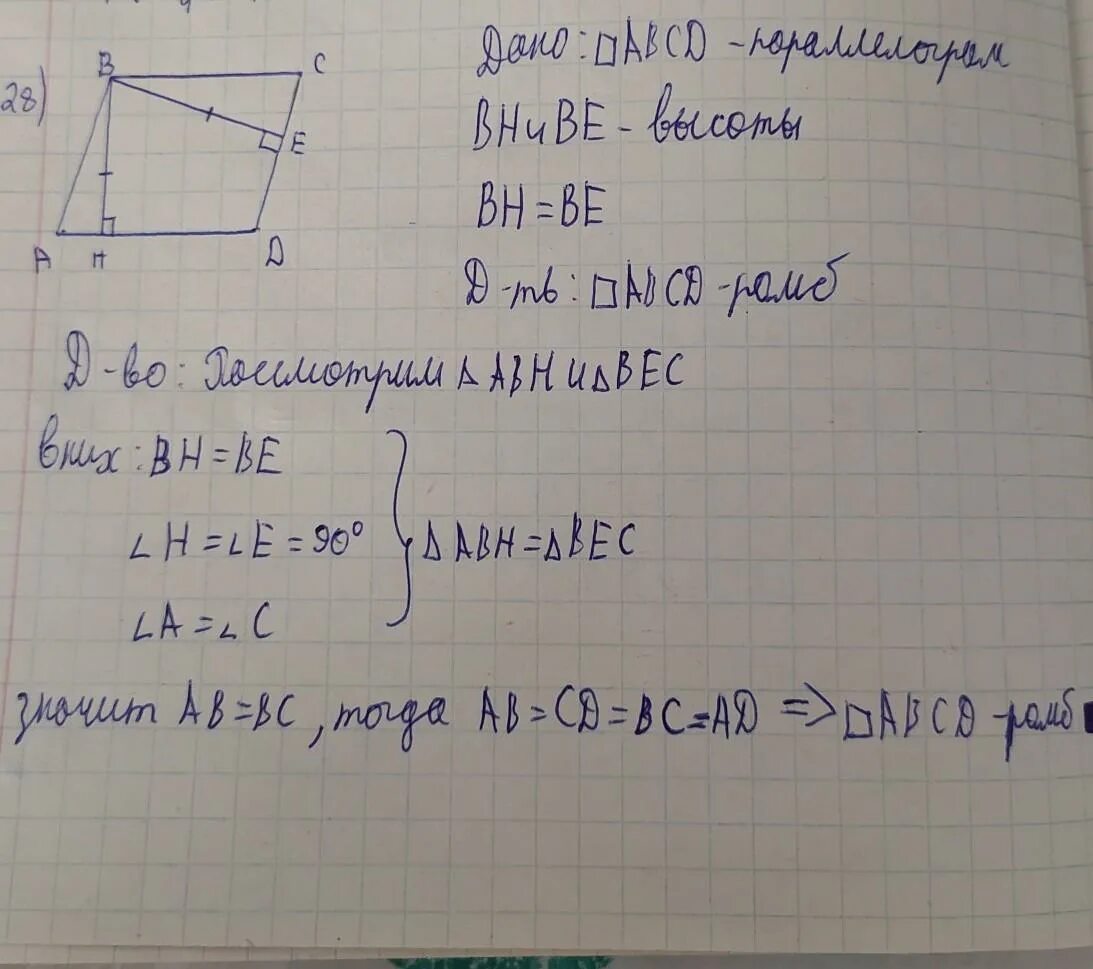 28)
B
C
E
A
H
D
Дано: □ABCD - параллелограм
BH и BE - высоты
BH = BE
Д-ть: □ABCD - ромб
Д-во: Рассмотрим △ABH и △BEC
В них: BH = BE
∠H = ∠E = 90°
∠A = ∠C
} △ABH = △BEC
значит AB = BC, тогда AB = CD = BC = AD => □ABCD - ромб